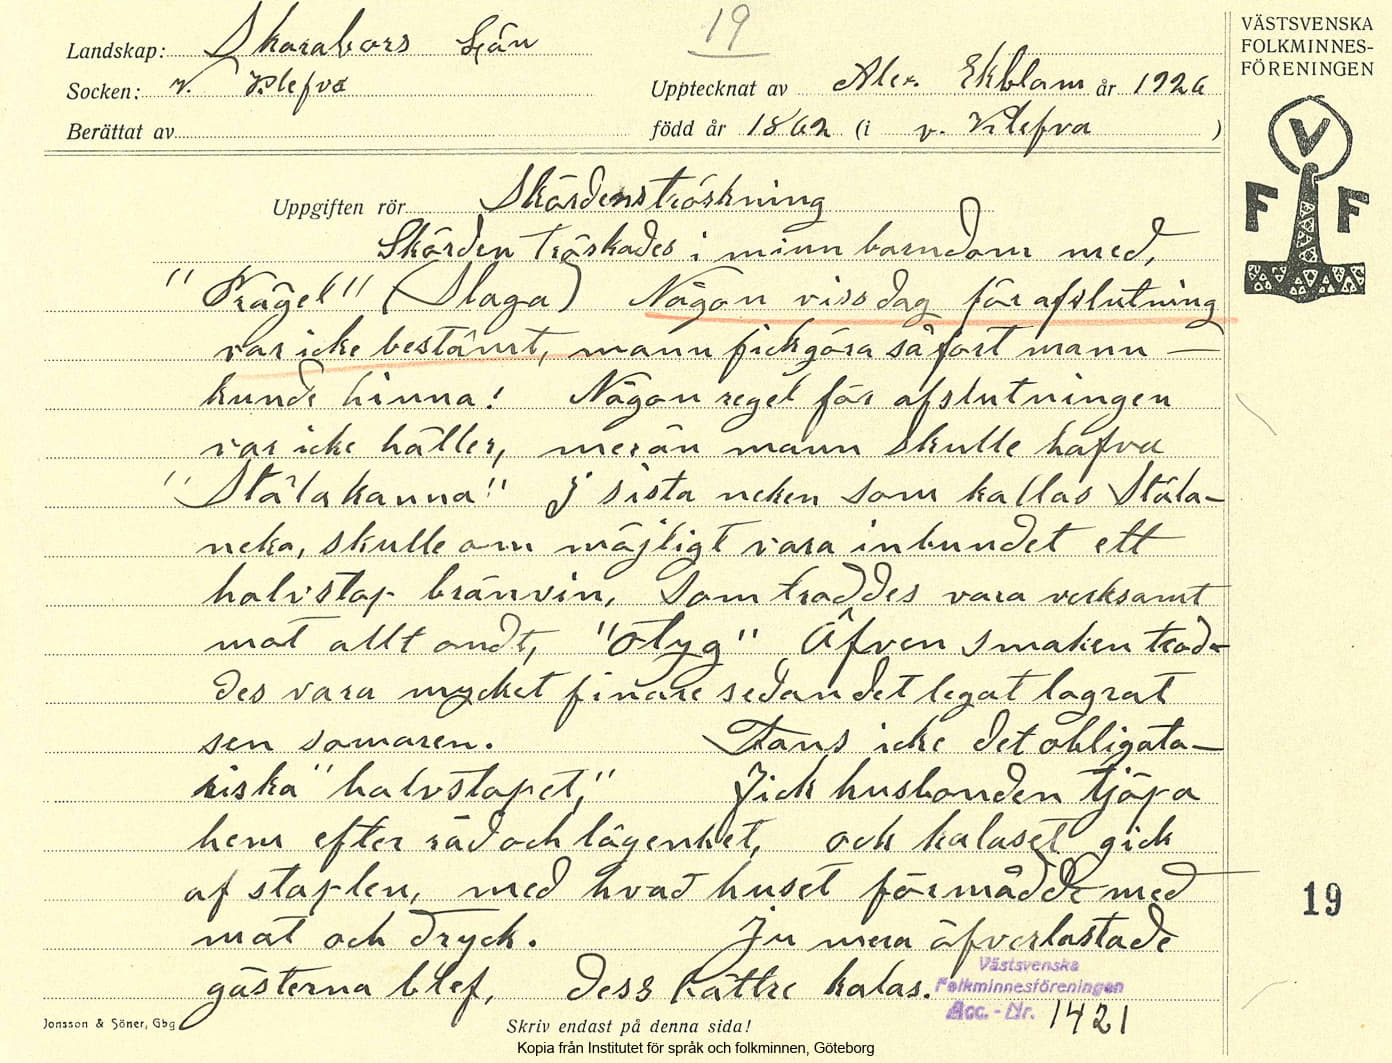 19
VÄSTSVENSKA
FOLKMINNES-
FÖRENINGEN
Landskap: Skarabors Län
Socken: v. Klefva
Upptecknat av Alex. Ekblom år 1926
Berättat av
född år 1862 (i v. Klefva)
V
F F
Uppgiften rör Skördenströskning
Skörden tröskades i minn barndom med,
"Prägel" (Slaga) Någon viss dag för afslutning
var icke bestämt, mann fick göra så fort mann —
kunde hinna! Någon regel för afslutningen
var icke häller, mer än mann skulle hafva
"Stålakanna" I sista neken som kallas Ståla-
neka, skulle om möjligt vara inbundet ett
halvstop bränvin, Som troddes vara verksamt
mot allt ondt, "otyg" Äfven smaken trod-
des vara mycket finare sedan det legat lagrat
sen somaren. Fans icke det obligato-
riska "halvstopet," Fick husbonden tjöpa
hem efter råd och lägenhet, och kalaset gick
af staplen, med hvad huset förmådde med
mat och dryck. Ju mera öfverlastade
gästerna blef, dess bättre kalas.
19
Västsvenska
Folkminnesföreningen
Acc. - Nr. 1421
Jonsson & Söner, Gbg
Skriv endast på denna sida!
Kopia från Institutet för språk och folkminnen, Göteborg